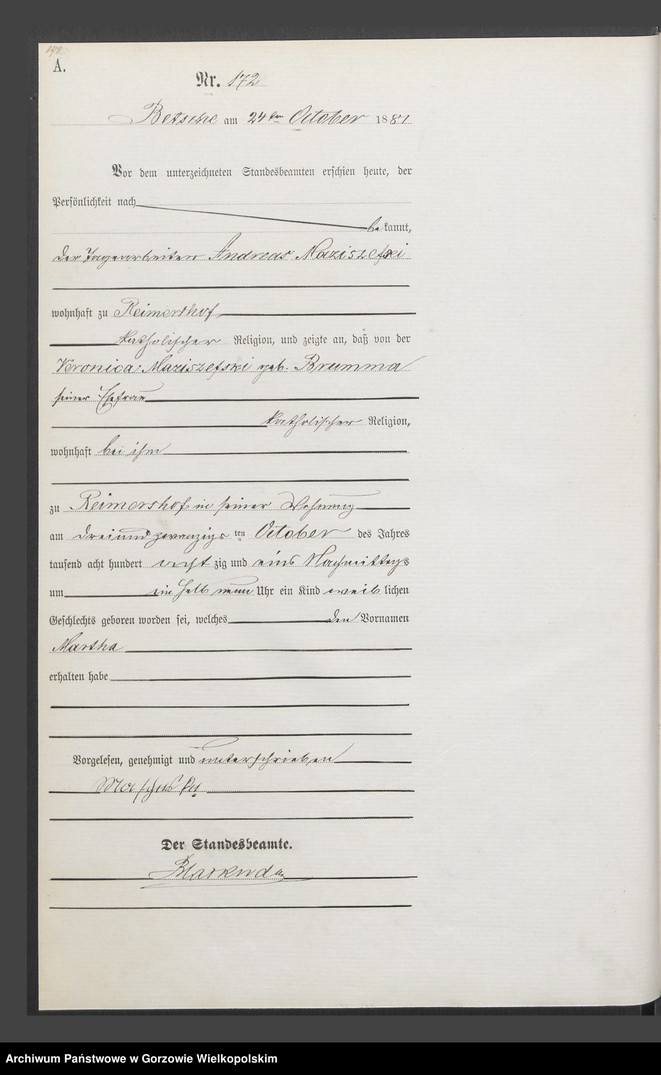 A.
Nr. 172
Betsche am 24ten October 1881
Vor dem unterzeichneten Standesbeamten erschien heute, der
Persönlichkeit nach
bekannt,
der Tagearbeiter Andreas Maziszefski
wohnhaft zu Reimershof
katholischer Religion, und zeigte an, daß von der
Veronica Maziszefski geb. Brumma
seiner Ehefrau
katholischer Religion,
wohnhaft bei ihm
zu Reimershof in seiner Wohnung
am dreiundzwanzigsten October des Jahres
tausend acht hundert achtzig und eins Nachmittags
um ein halb neun Uhr ein Kind weiblichen
Geschlechts geboren worden sei, welches den Vornamen
Martha
erhalten habe
Vorgelesen, genehmigt und unterschrieben
Der Standesbeamte.